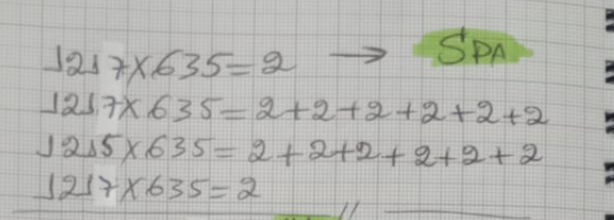 1217×635=2 → SPA
1217×635=2+2+2+2+2+2
1215×635=2+2+2+2+2+2
1217×635=2